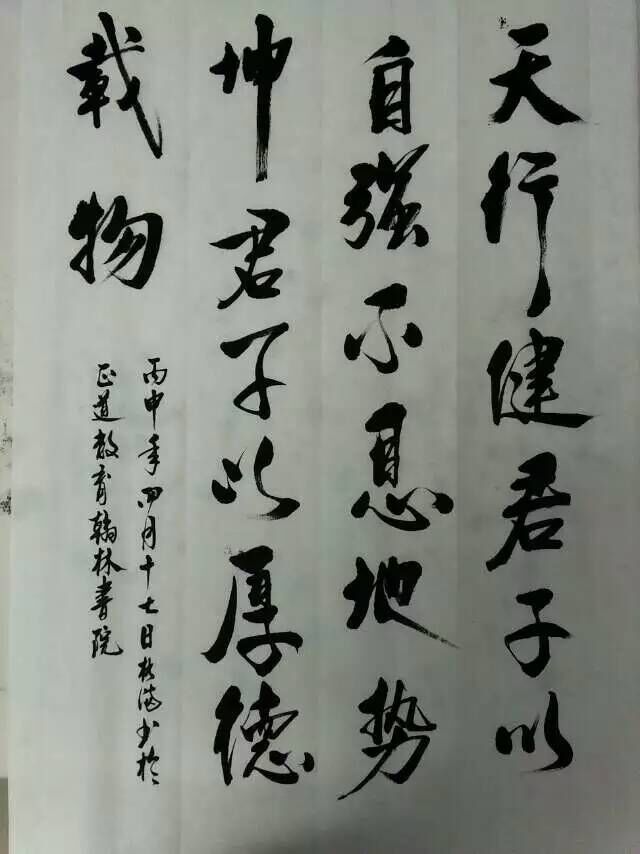 天行健君子以
自强不息地势
坤君子以厚德
载物
丙申年四月十七日 书于
正道教育翰林书院